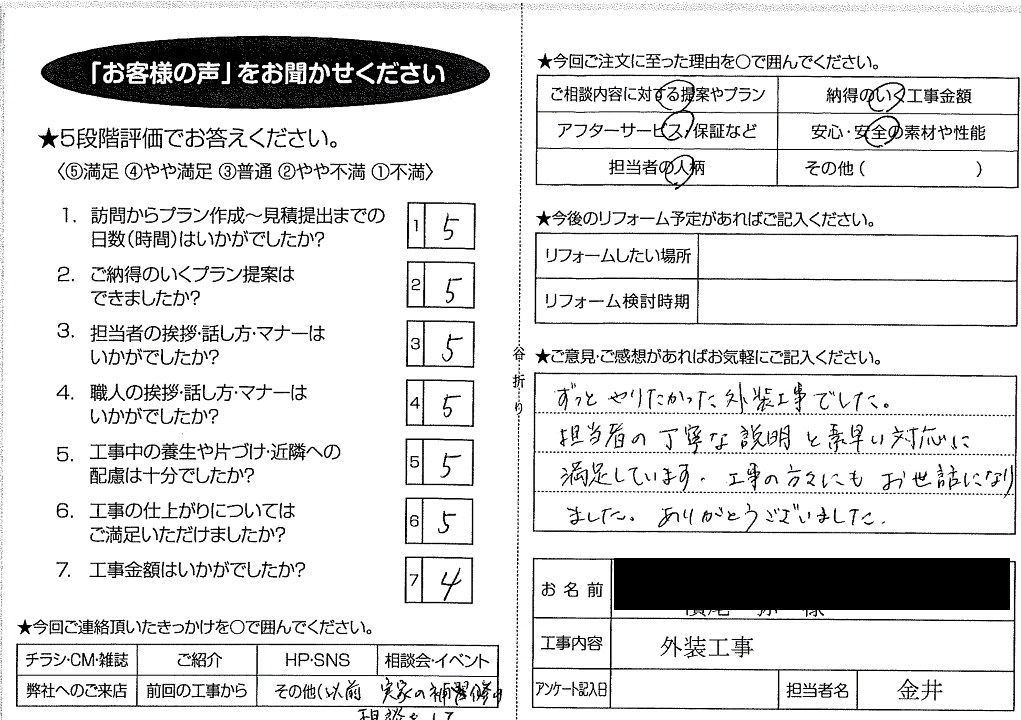 「お客様の声」をお聞かせください
★5段階評価でお答えください。
〈⑤満足 ④やや満足 ③普通 ②やや不満 ①不満〉
1. 訪問からプラン作成〜見積提出までの
日数(時間)はいかがでしたか?
1 5
2. ご納得のいくプラン提案は
できましたか?
2 5
3. 担当者の挨拶・話し方・マナーは
いかがでしたか?
3 5
4. 職人の挨拶・話し方・マナーは
いかがでしたか?
4 5
5. 工事中の養生や片づけ・近隣への
配慮は十分でしたか?
5 5
6. 工事の仕上がりについては
ご満足いただけましたか?
6 5
7. 工事金額はいかがでしたか?
7 4
★今回ご連絡頂いたきっかけを〇で囲んでください。
チラシ・CM・雑誌 ご紹介 HP・SNS 相談会・イベント
弊社へのご来店 前回の工事から その他(以前 実家の補習修の
相談をして
谷折り
★今回ご注文に至った理由を〇で囲んでください。
ご相談内容に対する提案やプラン 納得のいく工事金額
アフターサービス・保証など 安心・安全の素材や性能
担当者の人柄 その他( )
★今後のリフォーム予定があればご記入ください。
リフォームしたい場所
リフォーム検討時期
★ご意見・ご感想があればお気軽にご記入ください。
ずっと やりたかった 外装工事でした。
担当者の丁寧な説明と素早い対応に
満足しています。工事の方々にも お世話になり
ました。ありがとうございました。
お名前 様
工事内容 外装工事
アンケート記入日 担当者名 金井